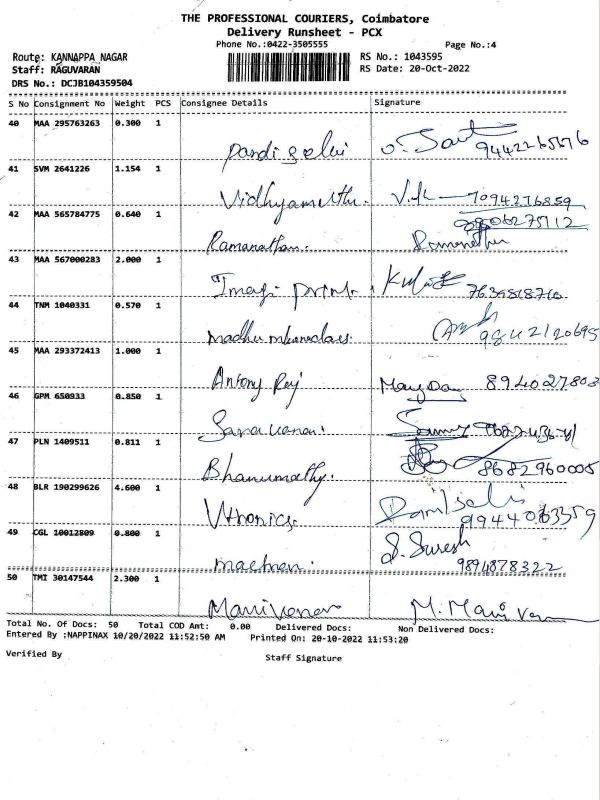 THE PROFESSIONAL COURIERS, Coimbatore
Delivery Runsheet - PCX
Phone No.:0422-3505555 Page No.:4
Route: KANNAPPA NAGAR RS No.: 1043595
Staff: RAGUVARAN RS Date: 20-Oct-2022
DRS No.: DCJB104359504
S No Consignment No Weight PCS Consignee Details Signature
40 MAA 295763263 0.300 1
41 SVM 2641226 1.154 1
Vidhyamuthu. 7094276859
42 MAA 565784775 0.640 1
Ramanathan.
43 MAA 567000283 2.000 1
44 TNM 1040331 0.570 1
9842120695
45 MAA 293372413 1.000 1
Antony Raj
46 GPM 650933 0.850 1
Saravanan.
47 PLN 1409511 0.811 1
Bhanumathy. 8682960005
48 BLR 190299626 4.600 1
Vtronics.
49 CGL 10012809 0.800 1
S. Suresh
9894878322
50 TMI 30147544 2.300 1
Manivanan
Total No. Of Docs: 50 Total COD Amt: 0.00 Delivered Docs: Non Delivered Docs:
Entered By :NAPPINAX 10/20/2022 11:52:50 AM Printed On: 20-10-2022 11:53:20
Verified By Staff Signature